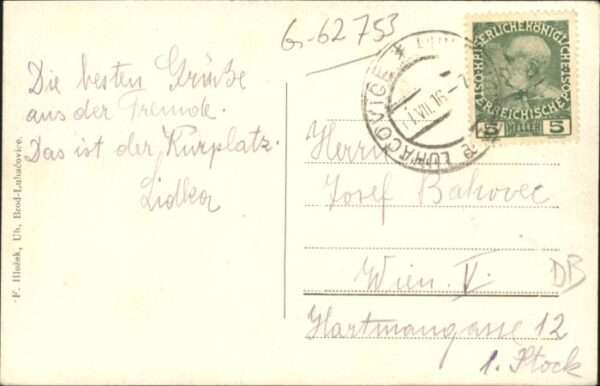 G-62753
Die besten Grüße
aus der Fremde.
Das ist der Kurplatz.
F. Hložek, Uh. Brod-Luhačovice.
LUHAČOVICE
VII.16
KAISERLICHE KÖNIGLICHE
ÖSTERREICHISCHE POST
5 HELLER 5
Herrn
Josef Bakovec
Wien V.
DB
Hartmanngasse 12
1. Stock